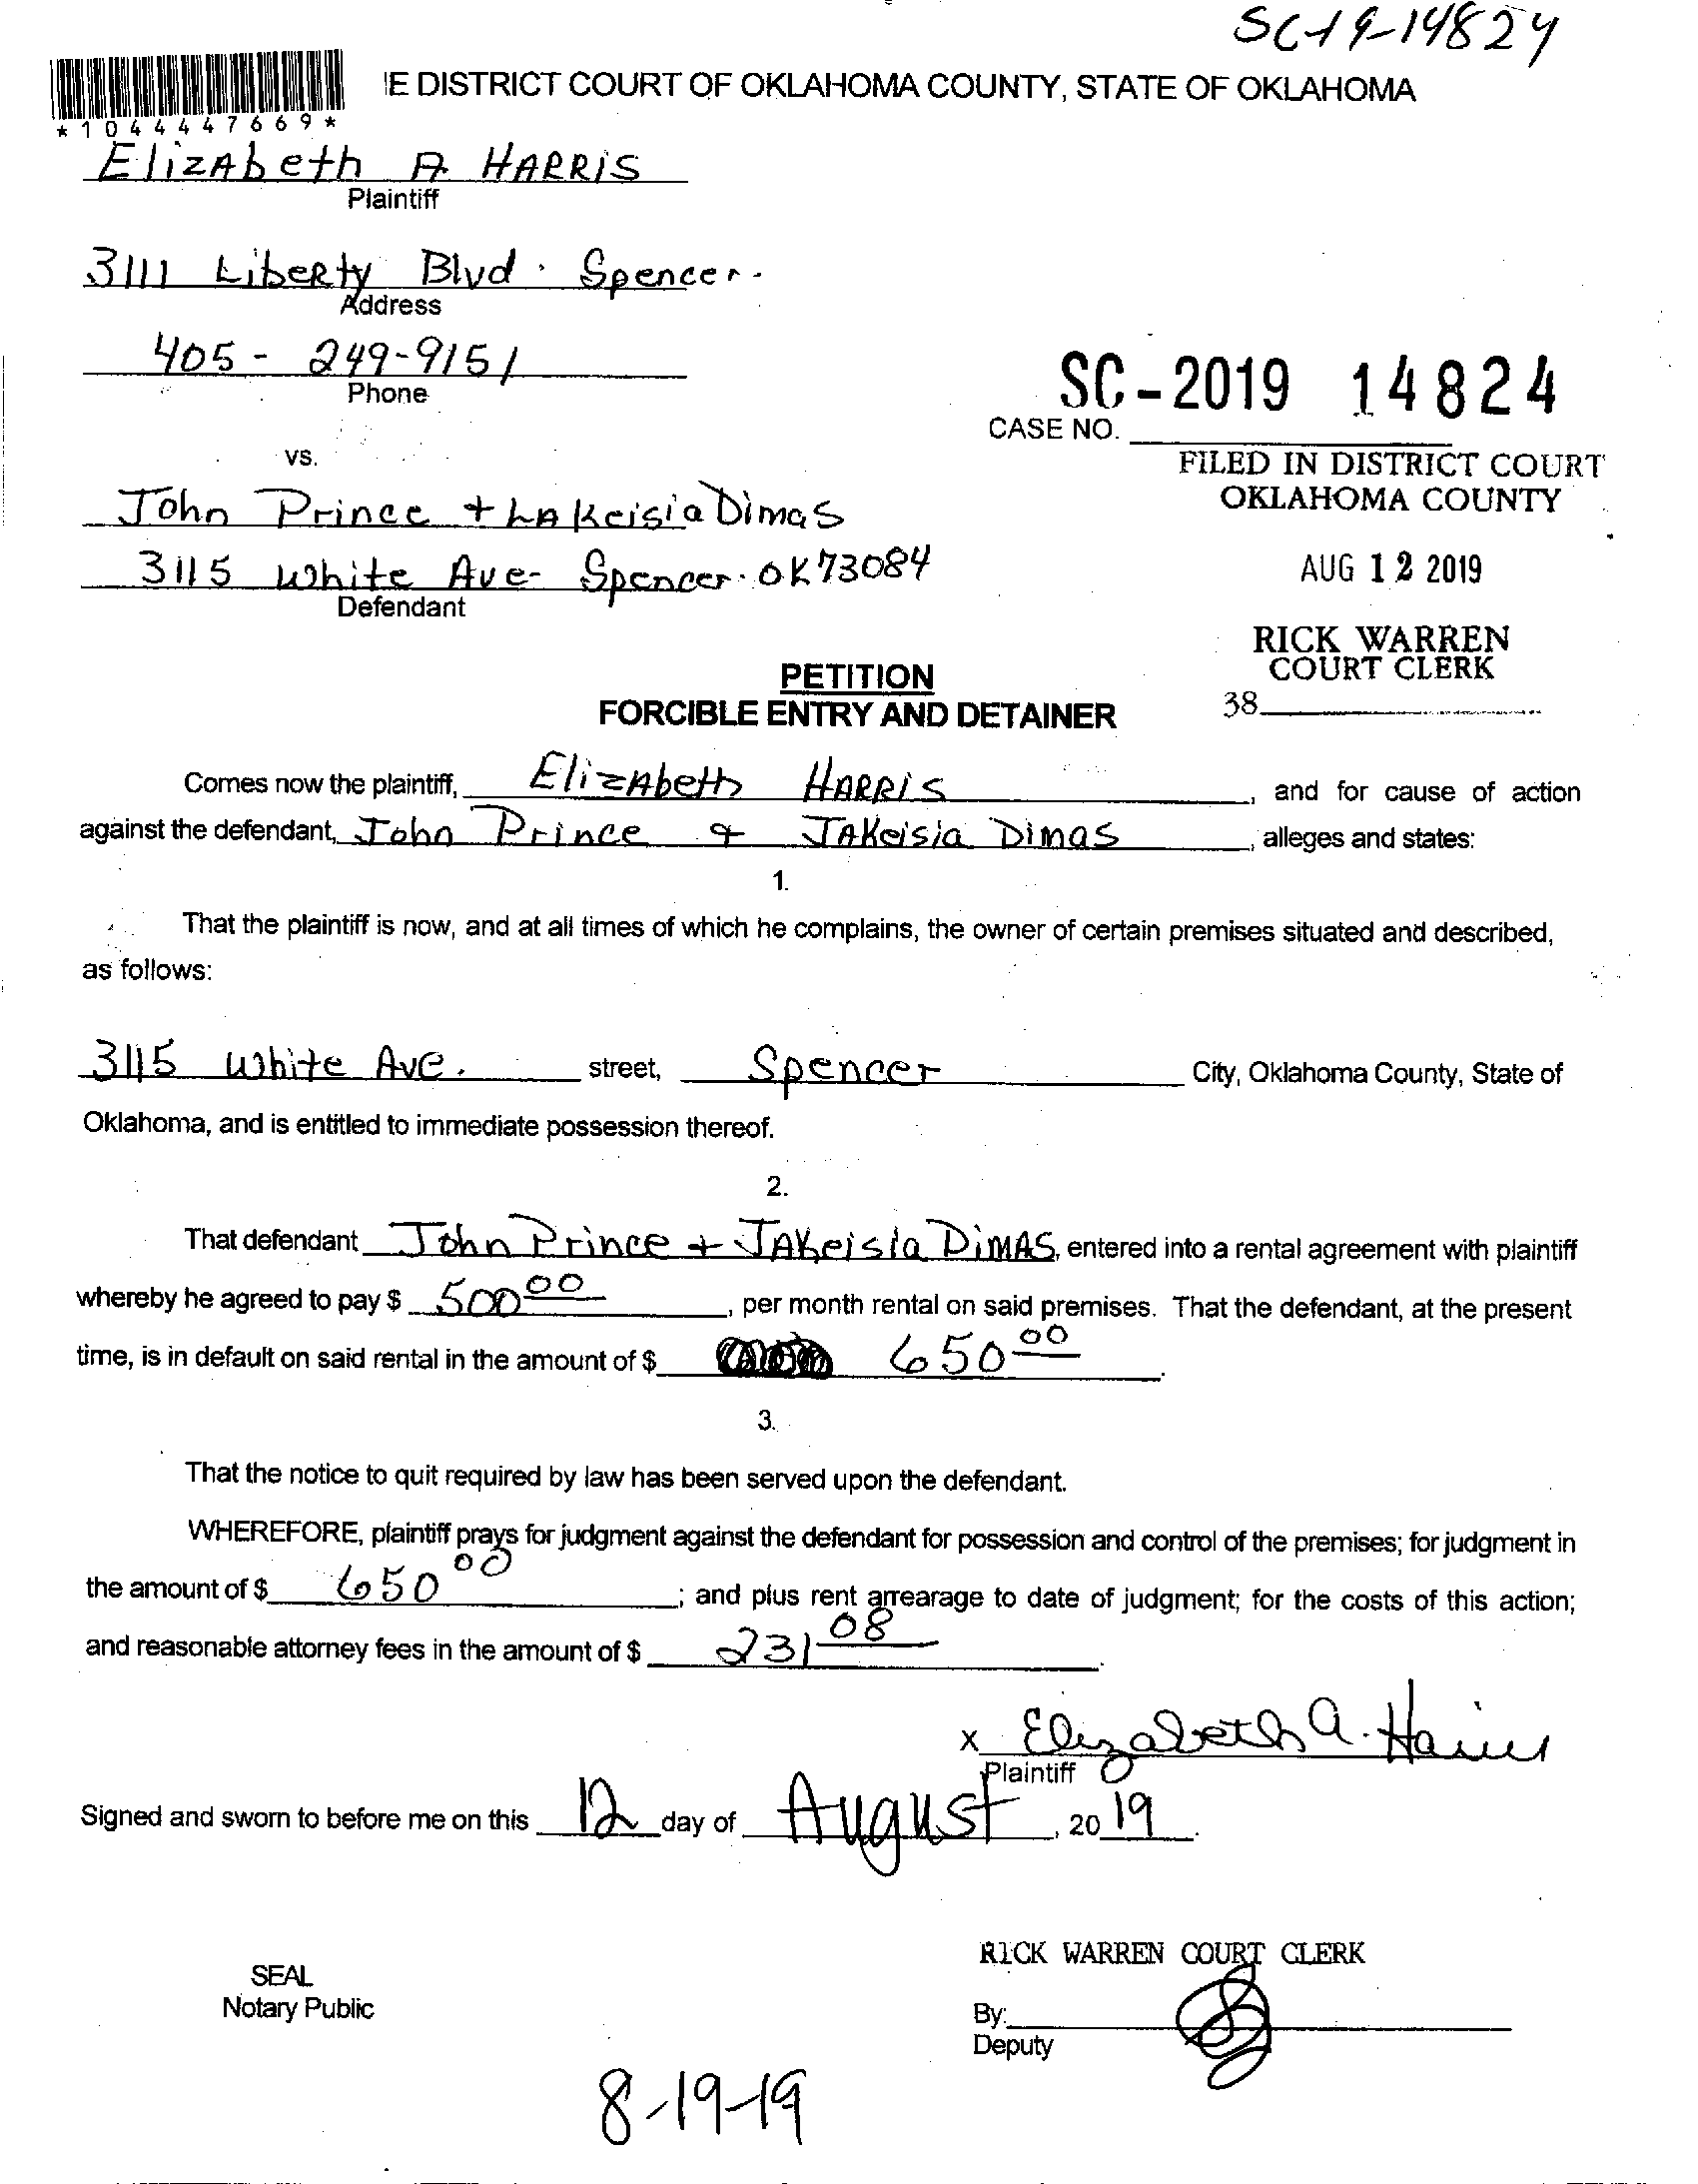 SC-19-14824
IE DISTRICT COURT OF OKLAHOMA COUNTY, STATE OF OKLAHOMA
*1044447669*
ElizAbeth A HARRIS
Plaintiff
3111 LibeRty Blvd. Spencer.
Address
405 - 249-9151
Phone
SC-2019 14824
CASE NO.
vs.
FILED IN DISTRICT COURT
OKLAHOMA COUNTY
John Prince + LAKeisia Dimas
3115 White Ave- Spencer. OK 73084
Defendant
AUG 12 2019
RICK WARREN
COURT CLERK
38
PETITION
FORCIBLE ENTRY AND DETAINER
Comes now the plaintiff, ElizAbeth HARRIS, and for cause of action
against the defendant, John Prince & JAKeisia Dimas, alleges and states:
1.
That the plaintiff is now, and at all times of which he complains, the owner of certain premises situated and described,
as follows:
3115 White Ave. street, Spencer City, Oklahoma County, State of
Oklahoma, and is entitled to immediate possession thereof.
2.
That defendant John Prince + JAKeisia DiMAS, entered into a rental agreement with plaintiff
whereby he agreed to pay $ 500 00, per month rental on said premises. That the defendant, at the present
time, is in default on said rental in the amount of $ 650 00.
3.
That the notice to quit required by law has been served upon the defendant.
WHEREFORE, plaintiff prays for judgment against the defendant for possession and control of the premises; for judgment in
the amount of $ 650 00; and plus rent arrearage to date of judgment; for the costs of this action;
and reasonable attorney fees in the amount of $ 231 08.
x Elizabeth A. Harris
Plaintiff
Signed and sworn to before me on this 12 day of August, 20 19.
RICK WARREN COURT CLERK
SEAL
Notary Public
By:
Deputy
8-19-19